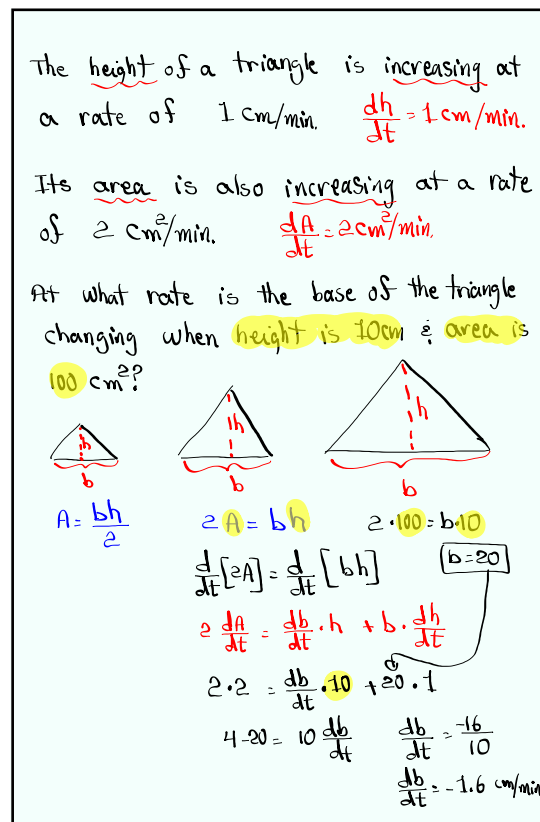 The height of a triangle is increasing at
a rate of 1 cm/min. dh/dt = 1 cm/min.
Its area is also increasing at a rate
of 2 cm²/min. dA/dt = 2 cm²/min.
At what rate is the base of the triangle
changing when height is 10cm & area is
100 cm²?
h h h
b b b
A = bh/2 2A = bh 2·100 = b·10
d/dt [2A] = d/dt [bh] b = 20
2 dA/dt = db/dt · h + b · dh/dt
2·2 = db/dt · 10 + 20 · 1
4-20 = 10 db/dt db/dt = -16/10
db/dt = -1.6 cm/min